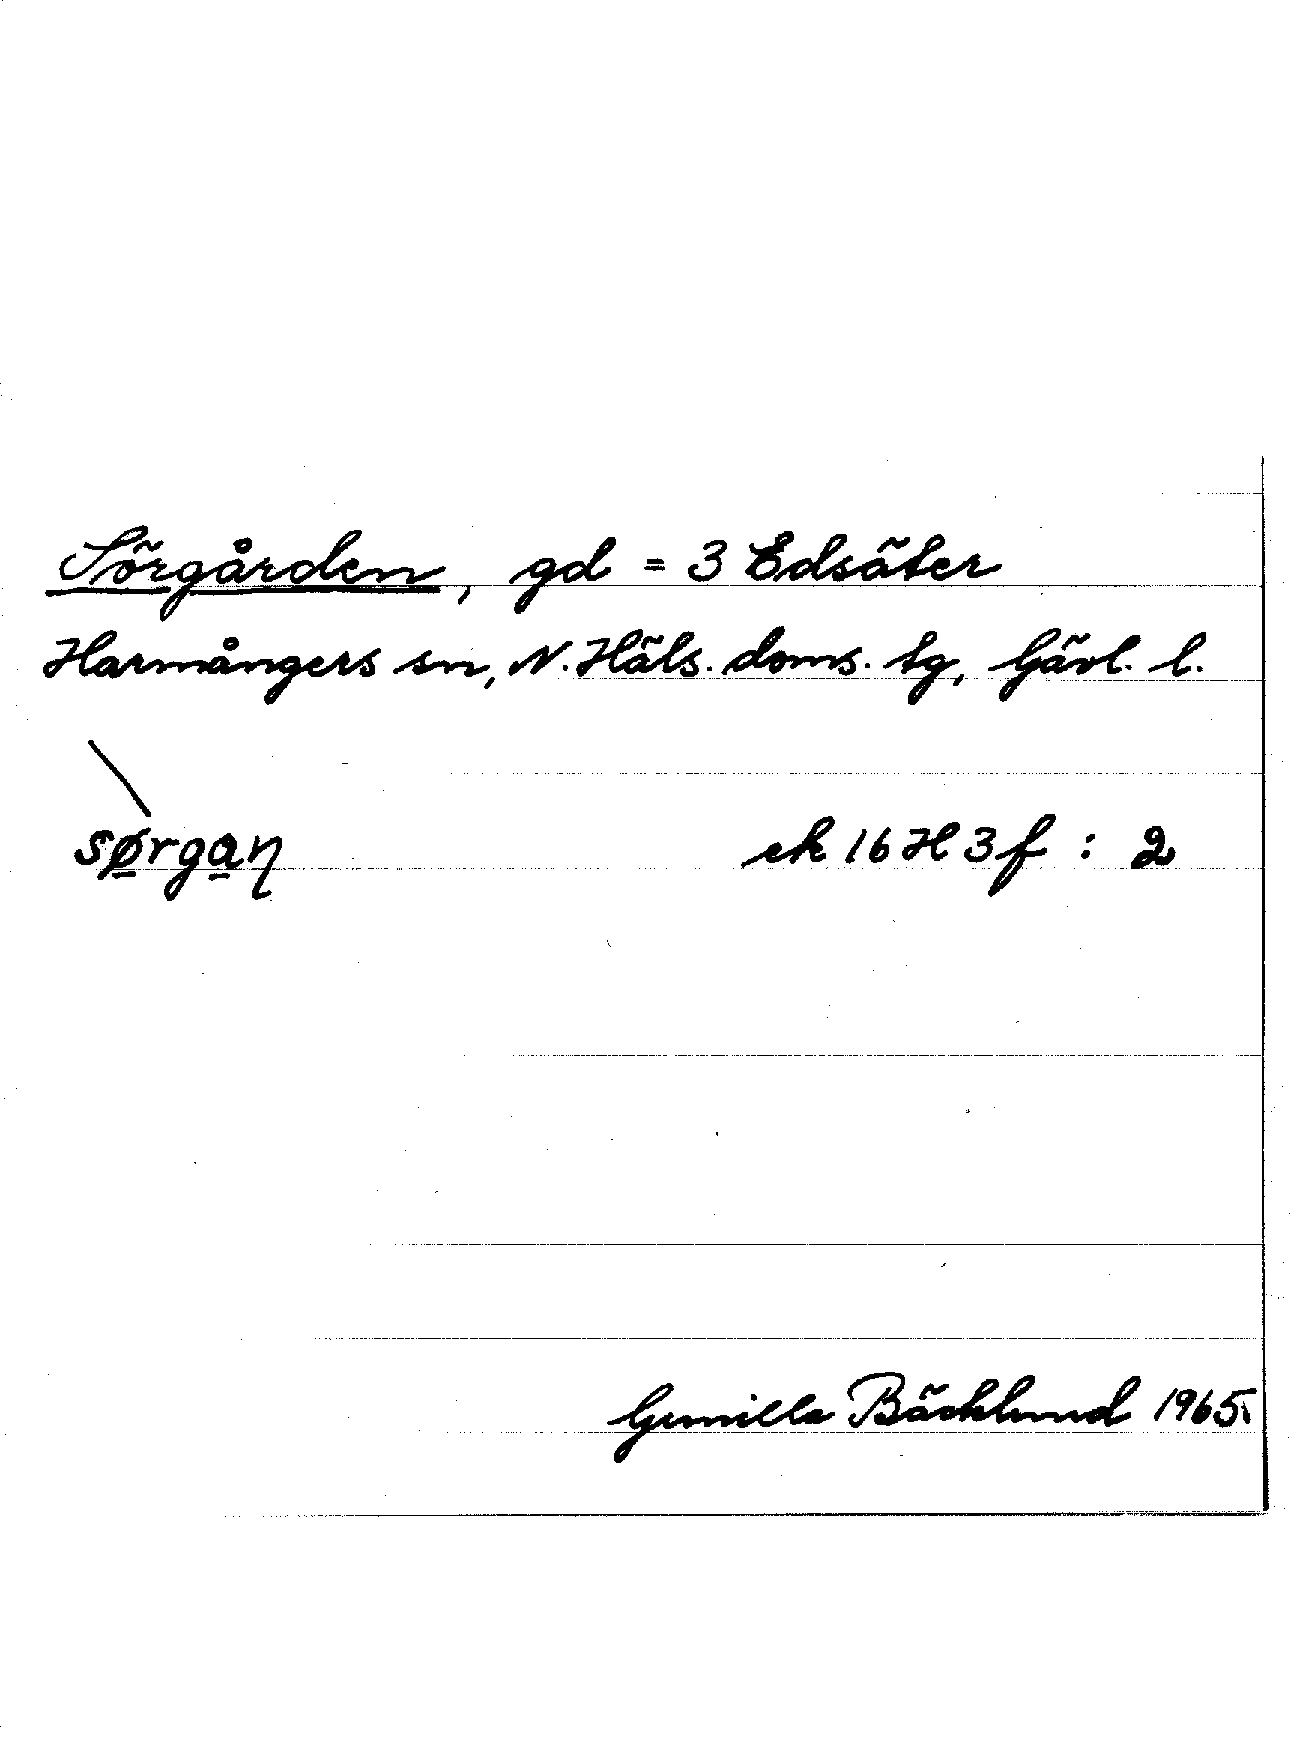 Sörgården, gd = 3 Edsäter
Harmångers sn, N. Häls. doms. tg, Gävl. l.
sørgaη ek 16 H 3 f : 2
Gunilla Bäcklund 1965.